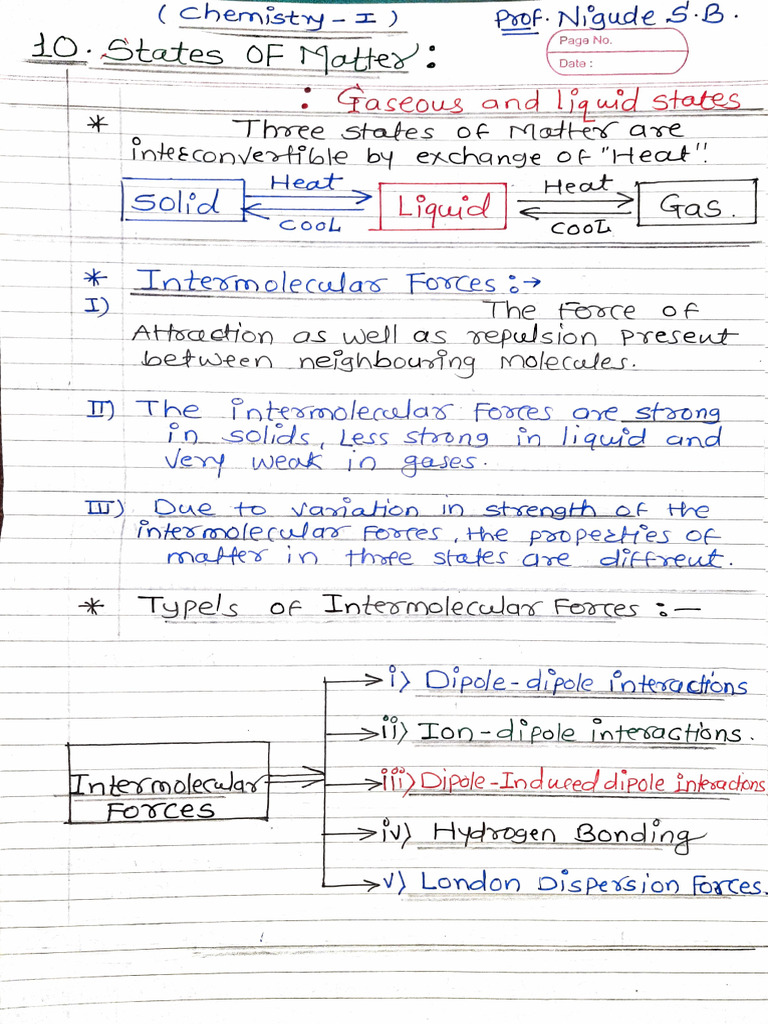 (Chemistry-I) Prof. Nigude S.B.
Page No.
Date :
10. States OF Matter :
: Gaseous and liquid states
* Three states of Matter are
interconvertible by exchange of "Heat".
Solid Heat Cool Liquid Heat Cool Gas.
* Intermolecular Forces :→
I) The Force of
Attraction as well as repulsion present
between neighbouring molecules.
II) The intermolecular Forces are strong
in solids, Less strong in liquid and
very weak in gases.
III) Due to variation in strength of the
intermolecular Forces, the properties of
matter in three states are diffrent.
* Type's of Intermolecular Forces :—
Intermolecular
Forces
i) Dipole-dipole interactions
ii) Ion-dipole interactions.
iii) Dipole-Induced dipole interactions
iv) Hydrogen Bonding
v) London Dispersion Forces.